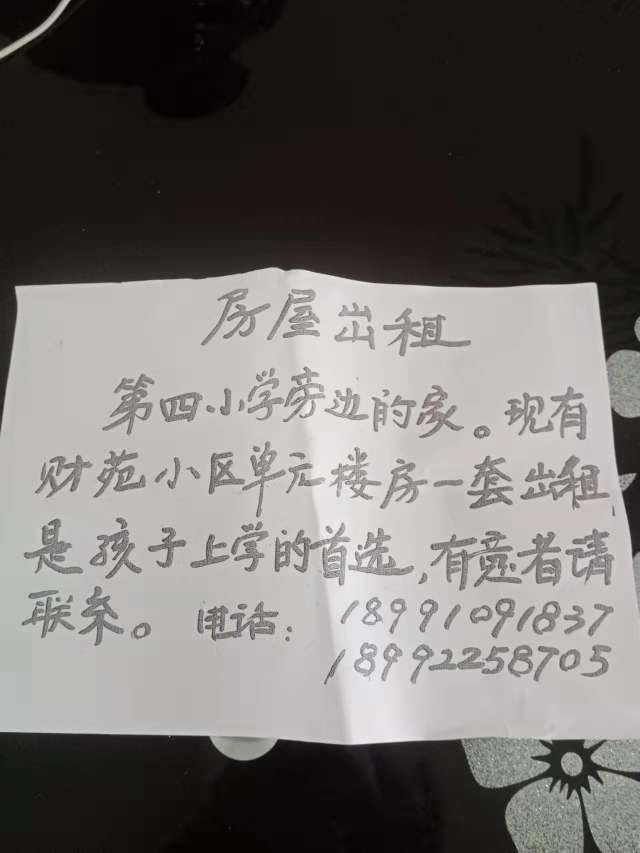 房屋出租
第四小学旁边的家。现有
财苑小区单元楼房一套出租
是孩子上学的首选,有意者请
联系。电话:18991091837
18992258705